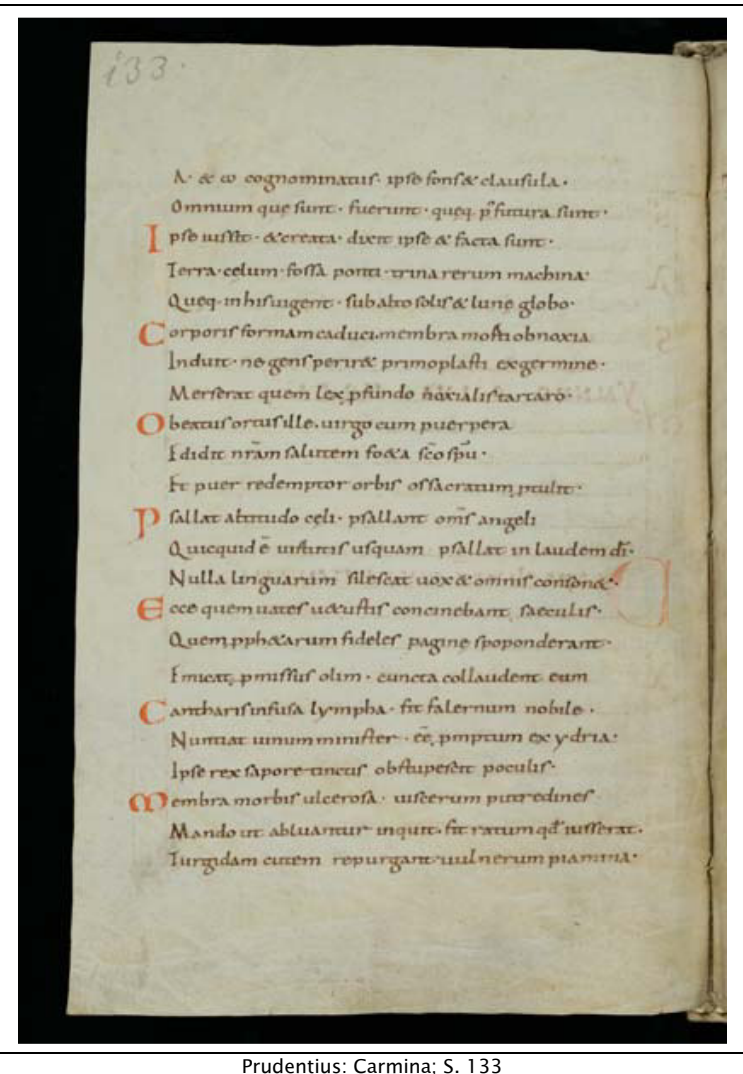 133.
A· & ω cognominatus· ipse fons & clausula·
Omnium quę sunt· fuerunt· queq; p̄ futura sunt·
Ipse iussit· & creata· dixit ipse & facta sunt·
Terra· celum· fossa ponti· trina rerum machina·
Queq; in his uigent· sub alto solis & lunę globo·
Corporis formam caduci· membra morti obnoxia
Induit· ne gens perir& primoplasti ex germine·
Merserat quem lex pfundo noxialis tartaro·
O beatus ortus ille· uirgo cum puerpera
Edidit nr̄am salutem foeta sc̄o sp̄u·
Et puer redemptor orbis os sacratum ptulit·
Psallat altitudo cęli· psallant om̄s angeli
Quicquid ē uirtutis usquam psallat in laudem dī·
Nulla linguarum silescat uox & omnis conson&·
Ecce quem uates uetustis concinebant saeculis·
Quem pph&arum fideles pagine spoponderant·
Emicat pmissus olim· cuncta collaudent eum
Cantharis infusa lympha· fit falernum nobile·
Nuntiat uinum minister· eē pmptum ex ydria·
Ipse rex sapore tinctis obstupescit poculis·
Membra morbis ulcerosa· uiscerum putredines
Mando ut abluantur inquit· fit ratum qd̄ iusserat·
Turgidam cutem repurgant uulnerum piamina·
Prudentius: Carmina; S. 133